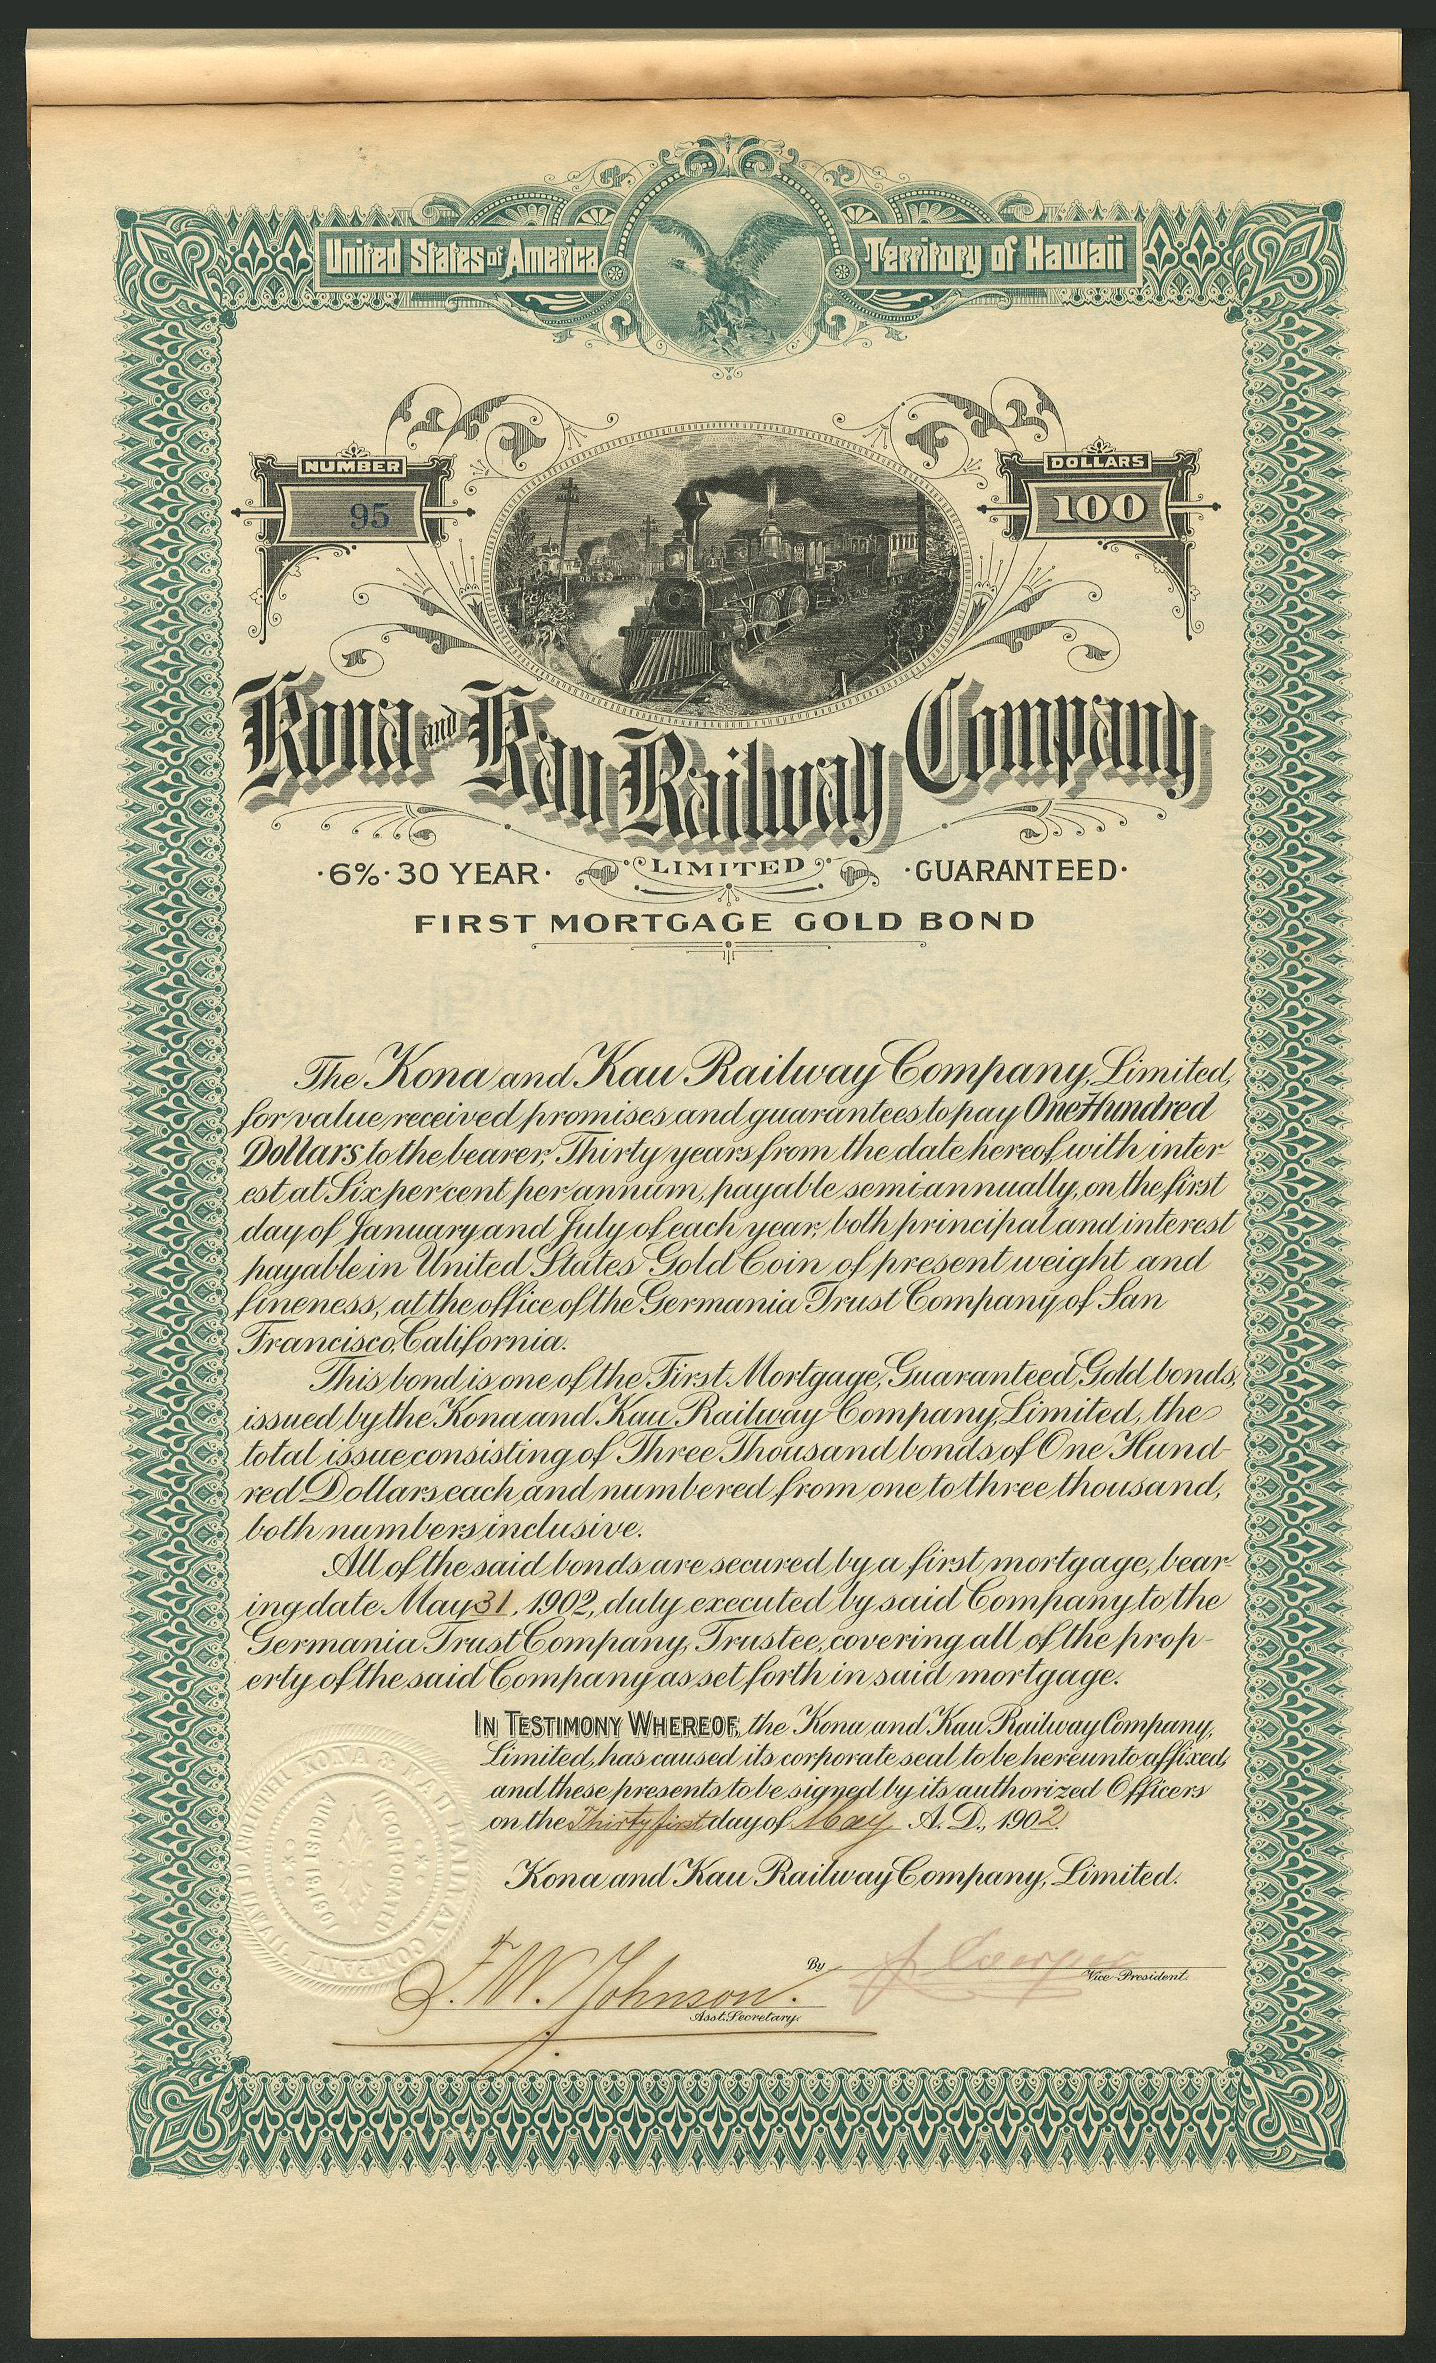 United States of America
Territory of Hawaii
NUMBER
95
DOLLARS
100
Kona and Kau Railway Company
LIMITED
·6%·30 YEAR·
·GUARANTEED·
FIRST MORTGAGE GOLD BOND
The Kona and Kau Railway Company, Limited,
for value received promises and guarantees to pay One Hundred
Dollars to the bearer, Thirty years from the date hereof with inter
est at Six per cent per annum, payable semiannually, on the first
day of January and July of each year, both principal and interest
payable in United States Gold Coin of present weight and
fineness, at the office of the Germania Trust Company of San
Francisco, California.
This bond is one of the First Mortgage, Guaranteed, Gold bonds,
issued by the Kona and Kau Railway Company, Limited, the
total issue consisting of Three Thousand bonds of One Hund-
red Dollars each and numbered from one to three thousand,
both numbers inclusive.
All of the said bonds are secured by a first mortgage, bear-
ing date May 31, 1902, duly executed by said Company to the
Germania Trust Company, Trustee, covering all of the prop-
erty of the said Company as set forth in said mortgage.
IN TESTIMONY WHEREOF, the Kona and Kau Railway Company,
Limited, has caused its corporate seal to be hereunto affixed,
and these presents to be signed by its authorized Officers
on the Thirty first day of May A. D., 1902
Kona and Kau Railway Company, Limited.
KONA & KAU RAILWAY COMPANY
TERRITORY OF HAWAII
INCORPORATED
AUGUST 13, 1901
F. W. Johnson.
Asst. Secretary.
By J Cowper
Vice-President.